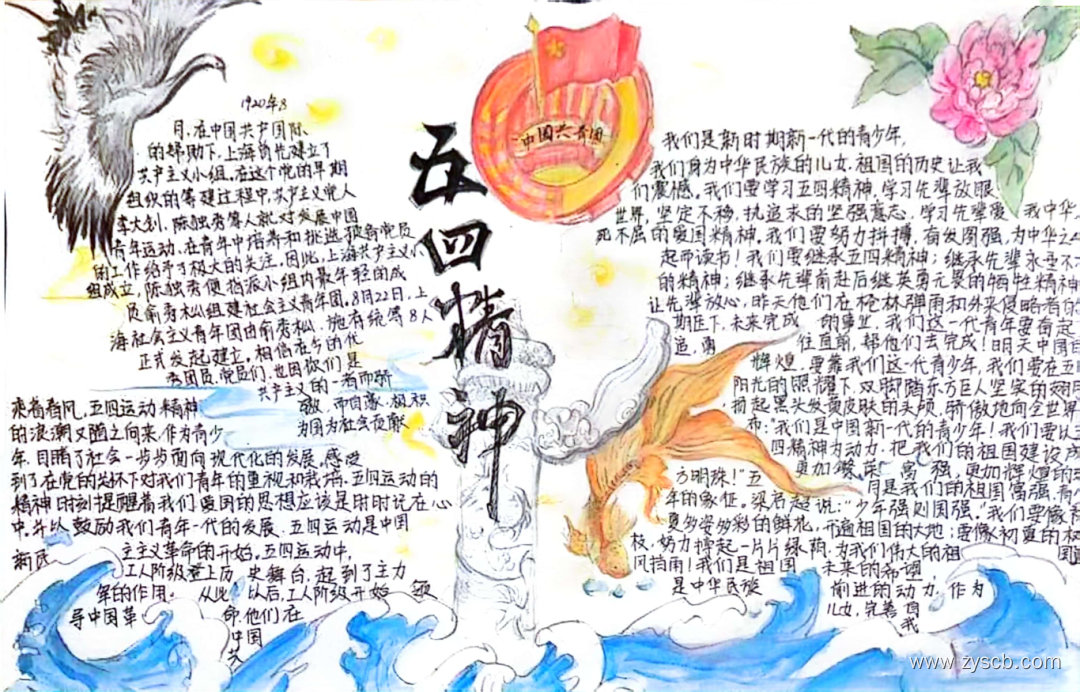 1920年8
月,在中国共产国际
的帮助下,上海首先建立了
共产主义小组,在这个党的早期
组织的筹建过程中,共产主义党人
李大钊、陈独秀等人就对发展中国
青年运动,在青年中培养和挑选预备党员
的工作给予了极大的关注,因此,上海共产主义小
组成立,陈独秀便指派小组内最年轻的成
员俞秀松组建社会主义青年团,8月22日,上
海社会主义青年团由俞秀松、施存统等8人
正式发起建立。相信在今的代
秀团员、党员们,也因你们是
共产主义的一者而骄
乘着春风,五四运动精神
傲,而自豪,积积
的浪潮又随之向来,作为青少
为国为社会贡献
年,目睹了社会一步步面向现代化的发展,感受
到了在党的关怀下对我们青年的重视和栽培。五四运动的
精神时刻提醒着我们爱国的思想应该是时时记在心
中,并以鼓励我们青年一代的发展。五四运动是中国
新民
主主义革命的开始。五四运动中,
工人阶级登上历史舞台,起到了主力
军的作用。从此以后,工人阶级开始领
导中国革
命,他们在
中国
共
五四精神
中国共青团
我们是新时期新一代的青少年,
我们身为中华民族的儿女,祖国的历史让我
们震憾。我们要学习五四精神,学习先辈放眼
世界,坚定不移,执追求的坚强意志,学习先辈爱我中华,
死不屈的爱国精神。我们要努力拼搏,奋发图强,为中华之
起而读书!我们要继承五四精神;继承先辈永垂不
的精神;继承先辈前赴后继英勇无畏的牺牲精神
让先辈放心,昨天他们在枪林弹雨和外来侵略者的
期压下,未来完成的事业,我们这一代青年要奋起
追,勇往直前,帮他们去完成!明天中国
辉煌,要靠我们这一代青少年,我们要在五
阳光的照耀下,双脚踏东方巨人坚实的
扬起黑头发黄皮肤的头颅,骄傲地向全世界
布:"我们是中国新一代的青少年!我们要以
四精神为动力,把我们的祖国建设成
更加繁荣、富强,更加辉煌的
方明珠!"五月是我们的祖国富强,青
年的象征。梁启超说:"少年强则国强。"我们要像
更多姿多彩的鲜花,开遍祖国的大地;要像初夏的
枝,努力撑起一片片绿荫,为我们伟大的祖国
风挡雨!我们是祖国未来的希望
是中华民族前进的动力,作为
儿女,完善自
我
www.zyscb.com